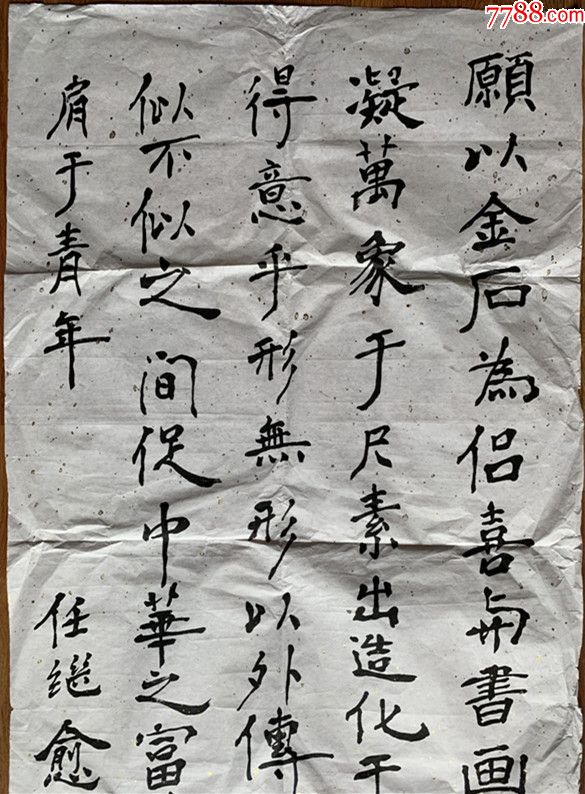 7788.com
願以金石為侣喜與書画
凝萬象于尺素出造化于
得意乎形無形以外傳
似不似之間促中華之富
肩于青年
任繼愈